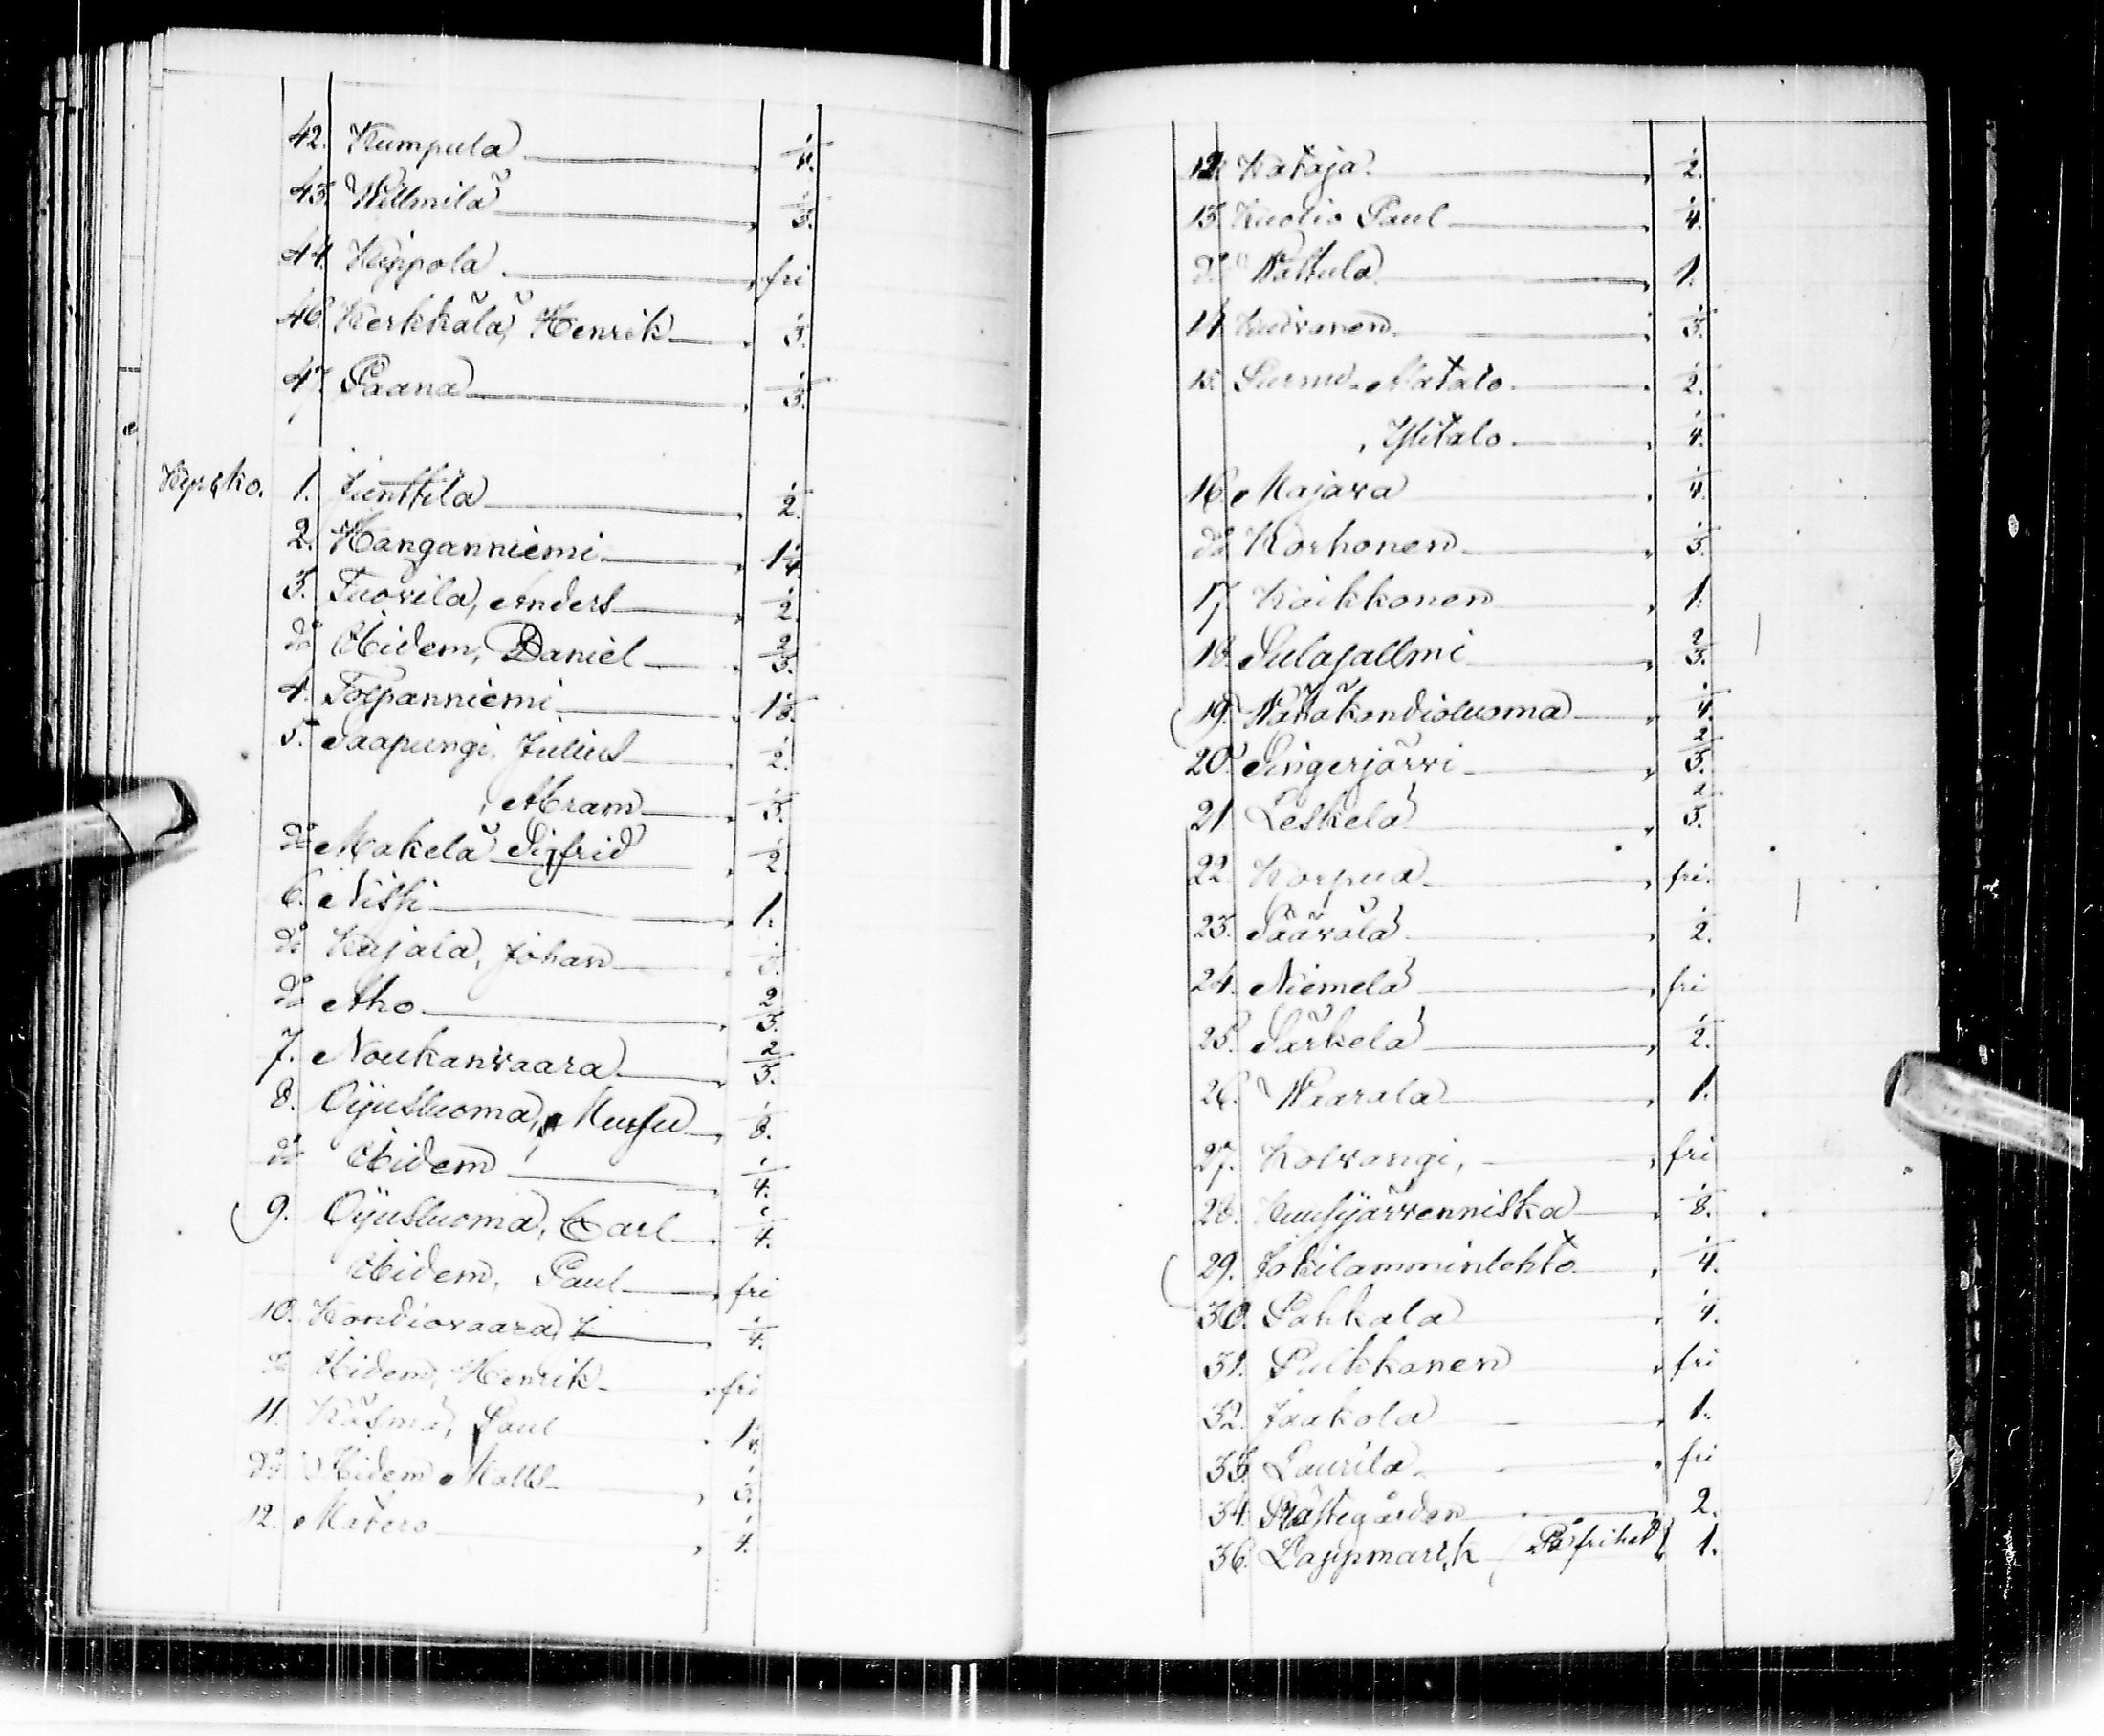 42. Kumpula 1/4.
43. Willmilä 1/3.
44. Kippola fri
46. Kerkkälä, Henrik 1/3.
47. Paana 1/3.
1. Junttila 1/2.
2. Hanganniemi 1 1/4.
3. Tuovila, Anders 1/2.
do Ibidem, Daniel 2/3.
4. Tolpanniemi 1 1/8.
5. Taapungi, Julius 1/2.
, Abram 1/3.
do Makelä Sigfrid 1/2.
6. Niski 1.
do Kajala, Johan 1/3.
do Aho 2/3.
7. Noukanvaara 2/3.
8. Oijusluoma, Mursu 1/8.
do Ibidem 1/4.
9. Oijusluoma, Carl 1/4.
Ibidem, Paul fri
10. Kondiovaara, J. 1/4.
do Ibidem, Henrik fri
11. Käsmä, Paul
do Ibidem Matts 1/3.
12. Matero 1/4.
12. Kataja 1/2.
13. Kuolio Paul 1/4.
do Wattula 1.
14. Kuivanen 1/3.
15. Purnu Alatalo 1/2.
, Ylitalo 1/4.
16. Majava 1/4.
do Korhonen 1/3.
17. Kaikkonen 1.
18. Sulasallmi 2/3.
19. Näräkondioluoma 1/4.
20. Singerjärvi 2/3.
21. Leskelä 2/3.
22. Korpua fri.
23. Säävälä 1/2.
24. Niemelä fri
25. Särkelä 1/2.
26. Waarala 1.
27. Kolvangi, fri
28. Kuusijärvenniska 1/8.
29. Jokilamminlehto 1/4.
30. Pahkala 1/4.
31. Pulkkanen fri
32. Jaakola 1.
33. Laurila fri
34. Prästegården 2.
36. Lappmark (På frihet) 1.